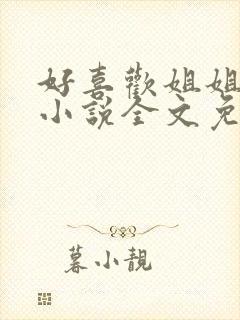 好喜歡姐姐
小說全文免
暮小靚